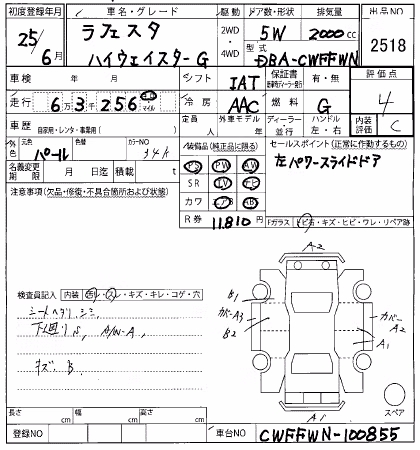 初度登録年月 車名・グレード 駆動 ドア数・形状 排気量 出品NO
25/6月 ラフェスタ ハイウェイスター G 2WD・4WD 5W 2000cc 2518
型式 DBA-CWFFWN
車検 年 月 シフト IAT 保証書 有・無 評価点
走行 6万3千256 冷房 AAC 燃料 G 4
車歴 自家用・レンタ・事業用( ) 定員 人 外車モデル 年 ディーラー・並行 ハンドル 左・右 内装評価 C
外色 元色 パール 色替 カラーNO 34K
装備品(純正品に限る) セールスポイント(正常に作動するもの)
名義変更期限 月 日迄 積載 t
PS PW AW 左パワースライドドア
注意事項(欠品・修復・不具合箇所および状態)
SR TV ナビ
カワ エアB AB
R券 11.810円
Fガラス トビ石・キズ・ヒビ・ワレ・リペア跡
A2
検査員記入 内装 汚レ・スレ・キズ・キレ・コゲ・穴
B1
シートヘタリ、シミ
カバーA3
B2
カバーA2
下回りS, A/W-A,
A1
キズ B
スペア
A1
長さ cm 幅 cm 高さ cm
登録NO 車台NO CWFFWN-100855